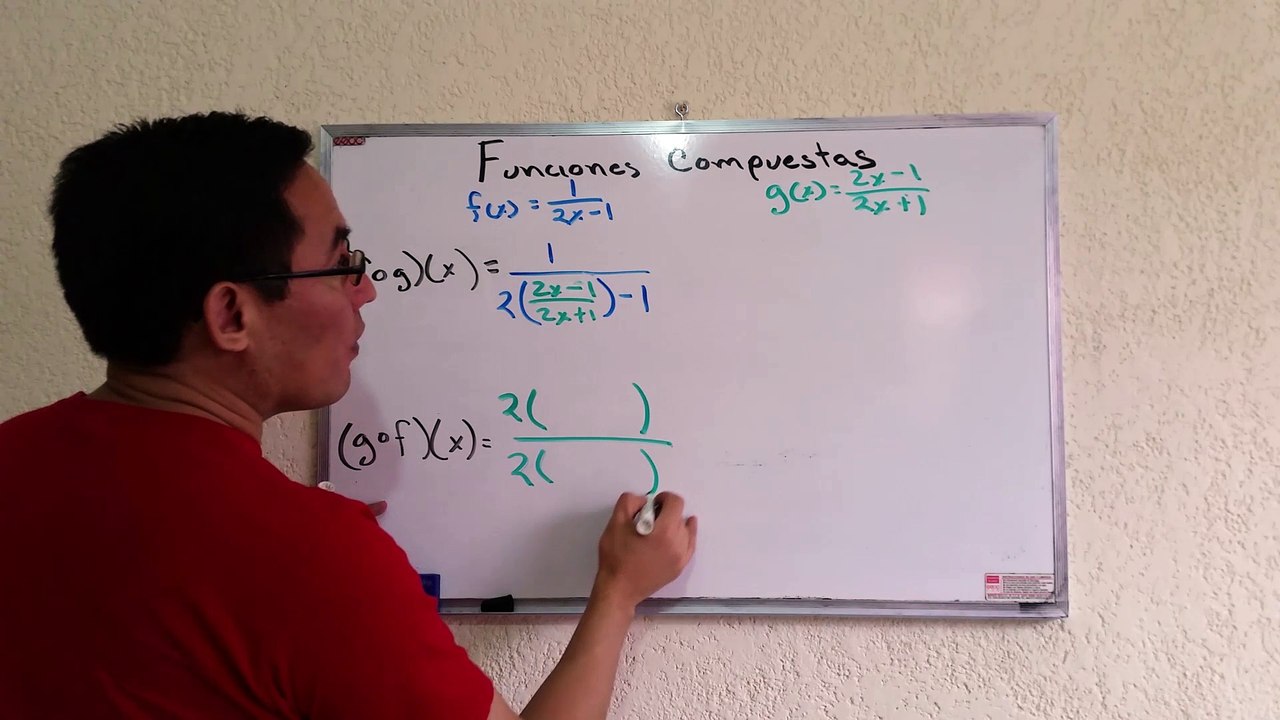 Funciones Compuestas
f(x) = 1/(2x-1) g(x) = (2x-1)/(2x+1)
og)(x) = 1/(2((2x-1)/(2x+1))-1)
(g∘f)(x) = 2( )/2( )